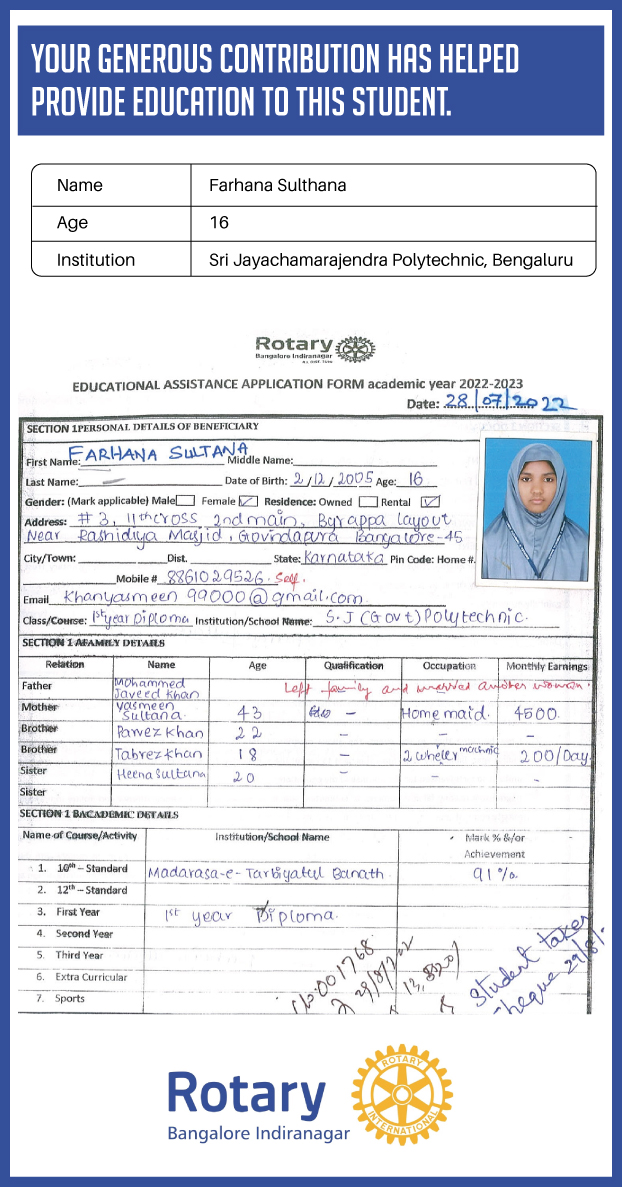 YOUR GENEROUS CONTRIBUTION HAS HELPED
PROVIDE EDUCATION TO THIS STUDENT.
Name Farhana Sulthana
Age 16
Institution Sri Jayachamarajendra Polytechnic, Bengaluru
Rotary
Bangalore Indiranagar
EDUCATIONAL ASSISTANCE APPLICATION FORM academic year 2022-2023
Date: 28/07/2022
SECTION 1PERSONAL DETAILS OF BENEFICIARY
First Name: FARHANA SULTANA Middle Name:
Last Name: Date of Birth: 2/12/2005 Age: 16
Gender: (Mark applicable) Male Female Residence: Owned Rental
Address: # 3, 11th cross 2nd main, Byrappa layout
Near Rashidiya Masjid, Govindapura Bangalore-45
City/Town: Dist. State: Karnataka Pin Code: Home #.
Mobile # 8861029526. Self.
Email Khanyasmeen 99000@gmail.com
Class/Course: 1st year Diploma Institution/School Name: S.J (Govt) Polytechnic.
SECTION 1 AFAMILY DETAILS
Relation Name Age Qualification Occupation Monthly Earnings
Father Mohammed Javeed Khan Left family and married another woman.
Mother Yasmeen Sultana. 43 - Home maid. 4500
Brother Parvez Khan 22 - - -
Brother Tabrez Khan 18 - 2 wheler mechnic 200/Day
Sister Heena Sultana 20 - - -
Sister
SECTION 1 BACADEMIC DETAILS
Name of Course/Activity Institution/School Name Mark % &/or
Achievement
1. 10th – Standard Madarasa-e-Tarbiyatul Banath 91%
2. 12th – Standard
3. First Year 1st year Diploma.
4. Second Year
5. Third Year
6. Extra Curricular
7. Sports
001768
Student taken
cheque 29/8/
Rotary
Bangalore Indiranagar
ROTARY
INTERNATIONAL